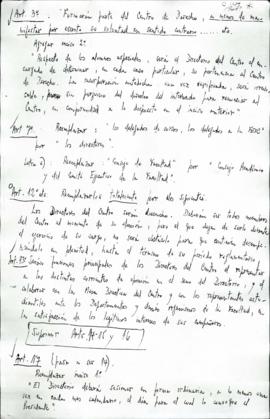 Art. 3º "Formarán parte del Centro de Derecho, a menos de mani-
festar por escrito su voluntad en sentido contrario..... etc.
Agregar inciso 2º
"Respecto de los alumnos egresados, será el Directorio del Centro el en-
cargado de determinar, en cada caso particular, su pertenencia al Centro
de Derecho. La incorporación contará con voz
sin perjuicio del derecho del interesado para renunciar al
Centro, en conformidad a lo dispuesto en el inciso anterior"
Art. 7º Reemplazar: "los delegados de cursos, los delegados a la FECH"
por "los directores".
Letra 2) Reemplazar: "Consejo de Facultad" por "Consejo Académico
y del Comité Ejecutivo de la Facultad".
Art. 12º de Reemplazarlo totalmente por los siguientes:
Los Directores del Centro serán dieciocho. Deberán ser todos miembros
del Centro al momento de la elección, pero el que dejen de serlo durante
el ejercicio de su cargo, no será obstáculo para que continúen desempe-
hasta el término de su período reglamentario
Art. 13: Serán funciones principales de los Directores del Centro el representar
a las distintas corrientes de opinión en el seno del Directorio, y el
colaborar con la Mesa Directiva del Centro y con los representantes estu-
diantiles ante los Departamentos y demás organismos de la Facultad, en
la satisfacción de los legítimos intereses de sus compañeros
Suprimir Arts. 14-15 y 16
Art. 17 (pasa a ser 14)
Reemplazar inciso 1º
"El Directorio deberá sesionar en forma ordinaria, a lo menos una
vez en cada mes calendario, el día para el cual lo convoque el
Presidente"